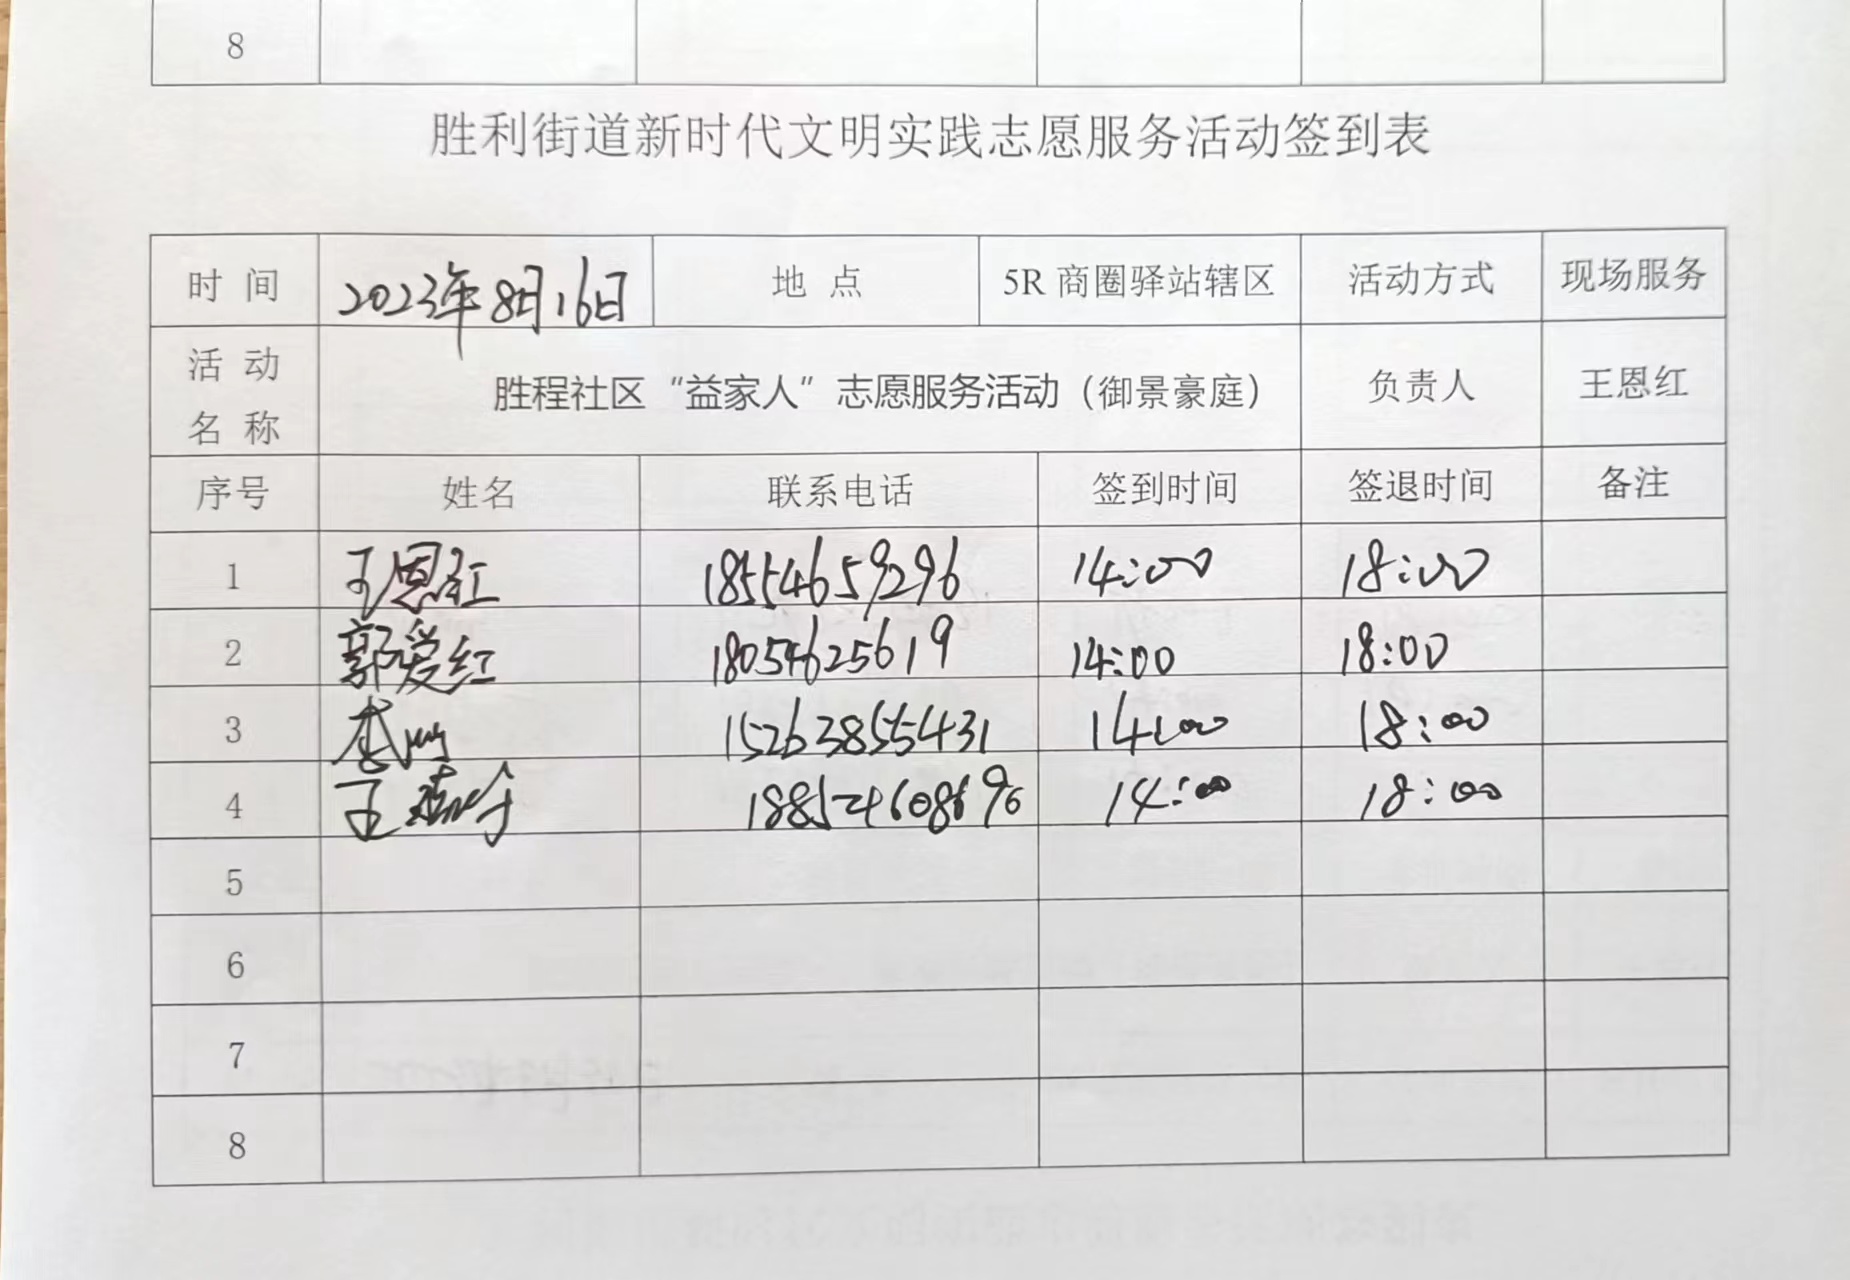 8
胜利街道新时代文明实践志愿服务活动签到表
时 间 2023年8月16日 地 点 5R 商圈驿站辖区 活动方式 现场服务
活 动
名 称 胜程社区“益家人”志愿服务活动（御景豪庭） 负责人 王恩红
序号 姓名 联系电话 签到时间 签退时间 备注
1 王恩红 18554659296 14:00 18:00
2 郭爱红 18054625619 14:00 18:00
3 李 15263855431 14:00 18:00
4 王 188524608690 14:00 18:00
5
6
7
8